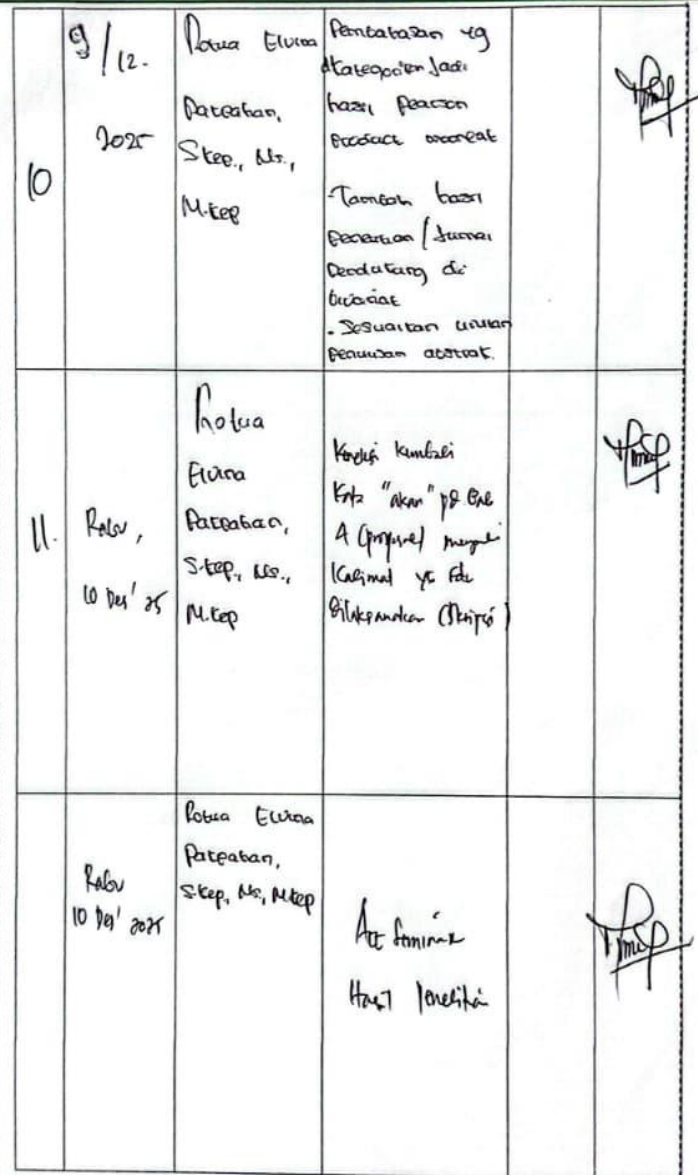 10
9/12.
2025
Rotua Elvina
Pakpahan,
S.Kep., Ns.,
M.Kep
Pembahasan yg
dikategorikan jadi
hasil pearson
product moment
- Tambah hasil
penelitian / Jurnal
pendukung di
bivariat
. Sesuaikan urutan
penulisan abstrak.
11.
Rabu,
10 Des' 25
Rotua
Elvina
Pakpahan,
S.Kep., Ns.,
M.Kep
kembali
Kata "akan" pd Bab
4 (proposal)
Kalimat yg
dilaksanakan (Skripsi)
Rabu
10 Des' 2025
Rotua Elvina
Pakpahan,
S.Kep, Ns, M.Kep
Acc Seminar
Hasil Penelitian